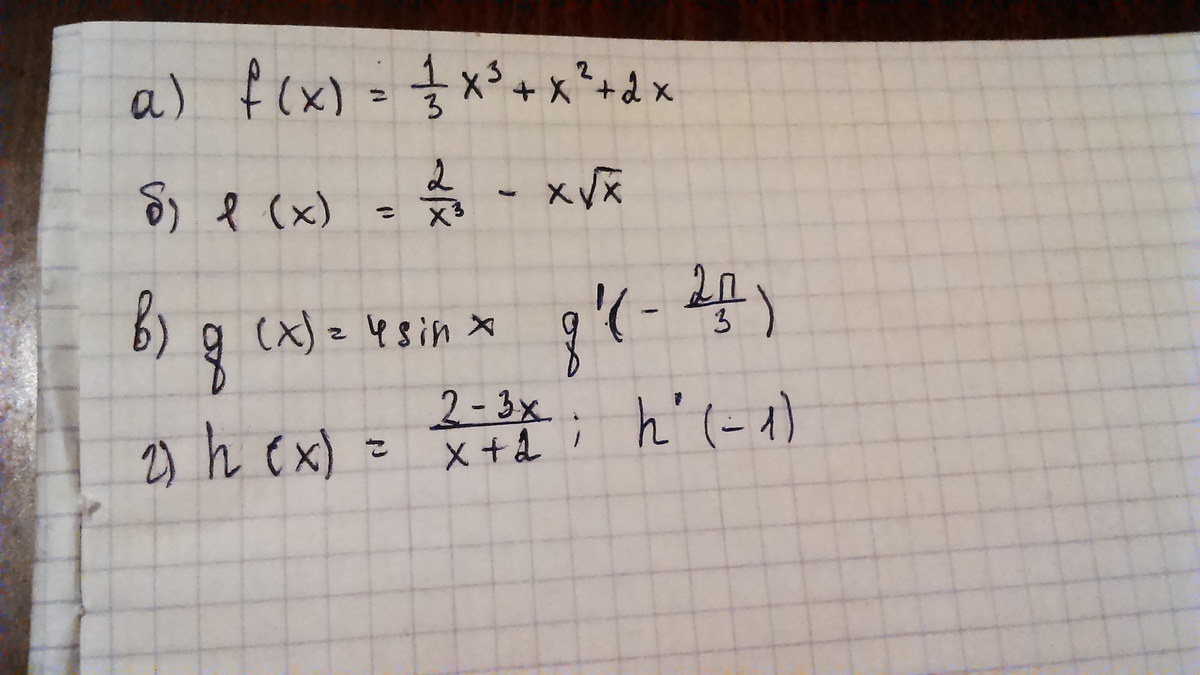 а) f(x) = 1/3 x³ + x² + 2x
б) f(x) = 2/x³ - x√x
в) g(x) = 4sin x g'(- 2π/3)
г) h(x) = (2-3x)/(x+2); h'(-1)